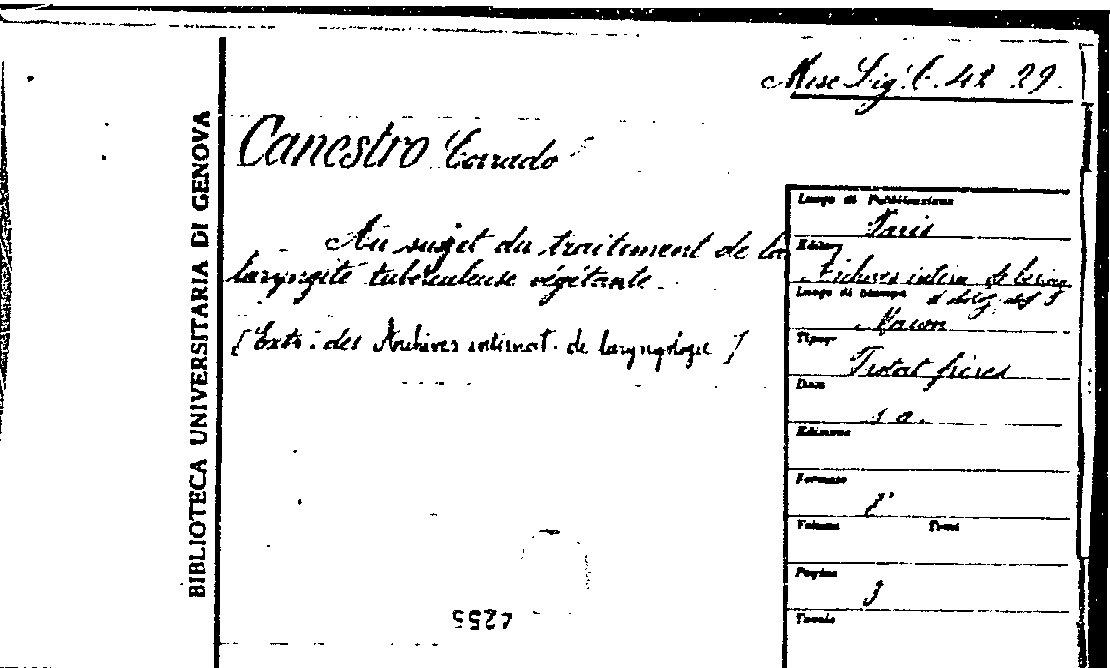 Misc. Lig. C. 42 29.
BIBLIOTECA UNIVERSITARIA DI GENOVA
Canestro Corrado
Au sujet du traitement de la
laryngite tuberculeuse végétante
[Extr. des Archives internat. de laryngologie]
Luogo di Pubblicazione
Paris
Editore
Archives intern. de laring.
Luogo di Stampa
Macon
Tipogr
Protat frères
Data
s a.
Edizione
Formato
8°
Volume Tomi
Pagine
Tavole
4255